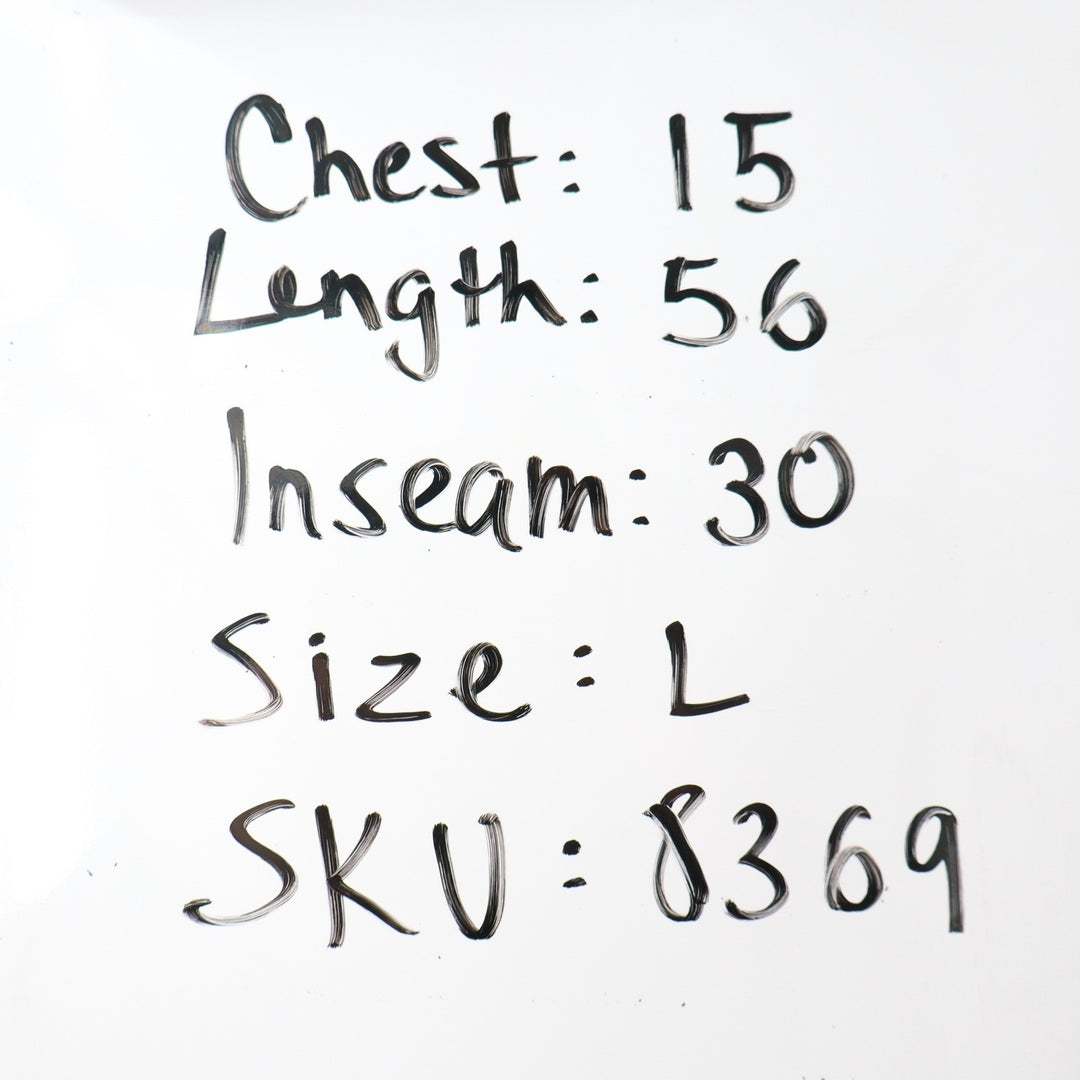 Chest: 15
Length: 56
Inseam: 30
Size: L
SKU: 8369